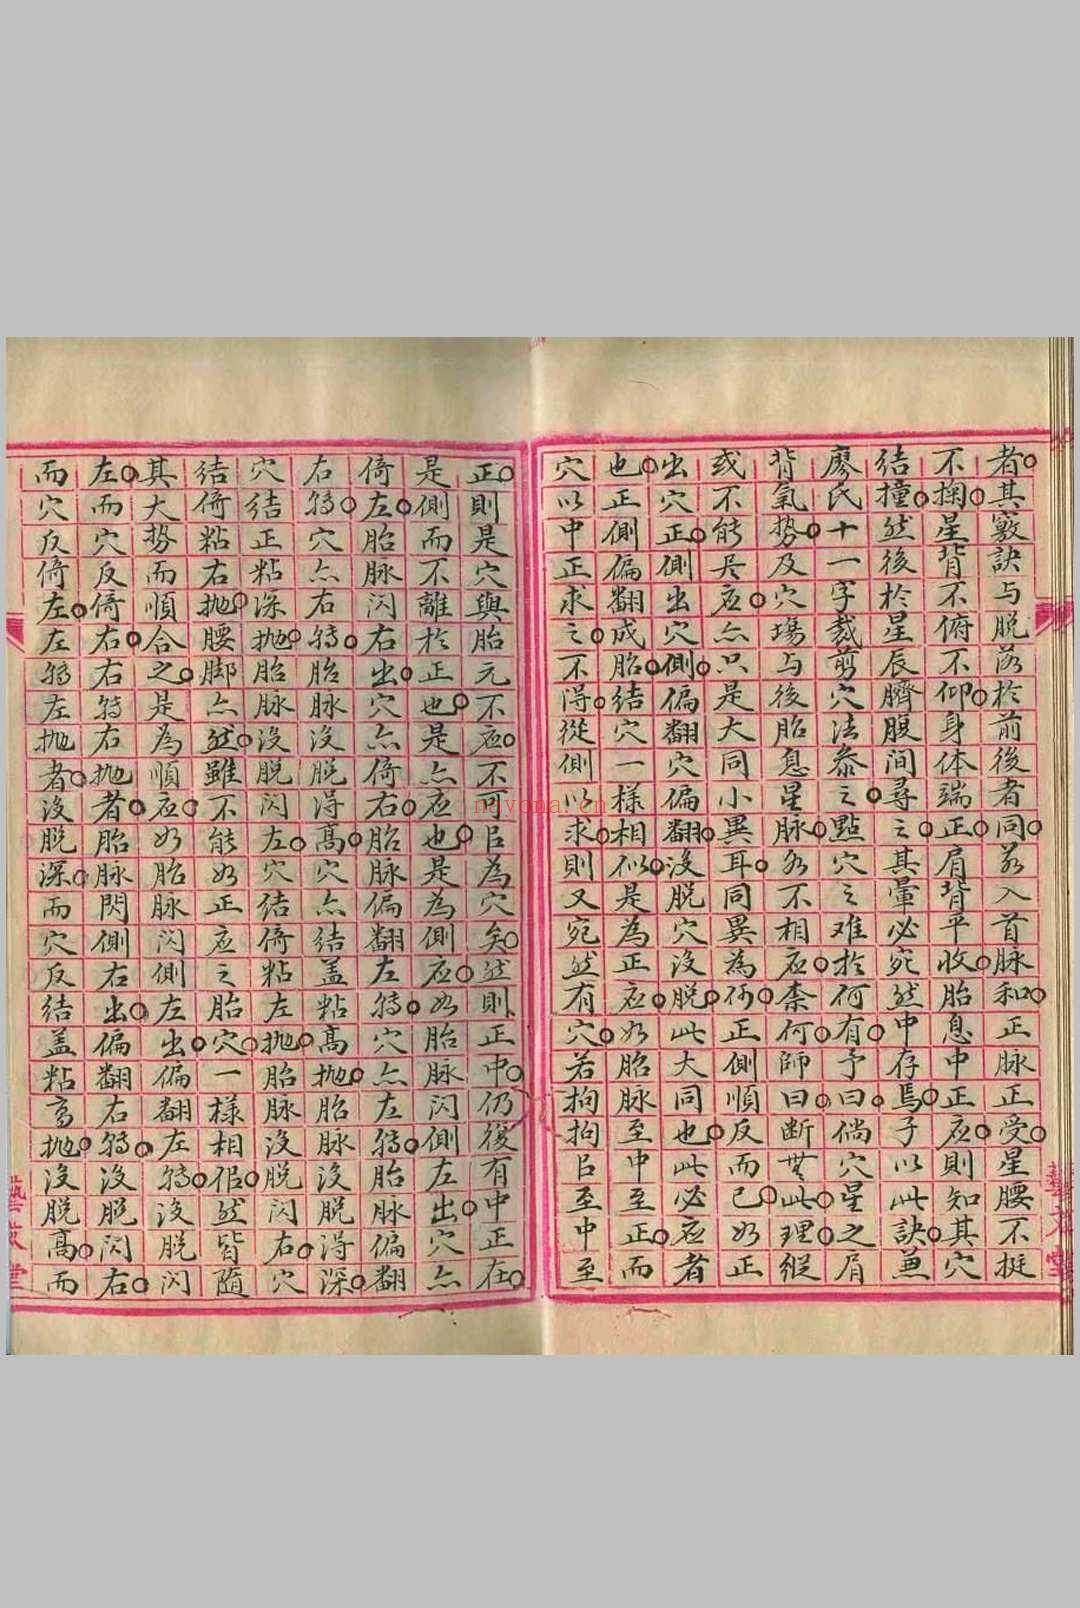 者其竅訣与脱落於前後者同若入首脉和正脉正受星腰不挺
不掬星背不俯不仰身体端正肩背平收胎息中正应則知其穴
結撞然後於星辰臍腹間尋之其暈必宛然中存焉子以此訣兼
廖氏十一字裁剪穴法叅之點穴之难於何有予曰倘穴星之肩
背氣势及穴塲与後胎息星脉多不相应柰何師曰断無此理縱
或不能尽应亦只是大同小異耳同異為何正側順反而已如正
出穴正側出穴側偏翻穴偏翻没脱穴没脱此大同也此必应者
也正側偏翻成胎結穴一様相似是為正应如胎脉至中至正而
穴以中正求之不得從側以求則又宛然有穴若拘拘㠯至中至
正則是穴與胎元不应不可㠯為穴矣然則正中仍復有中正在
是側而不離於正也是亦应也是為側应如胎脉闪側左出穴亦
倚左胎脉闪右出穴亦倚右胎脉偏翻左转穴亦左转胎脉偏翻
右转穴亦右转胎脉没脱得高穴亦結盖粘高抛胎脉没脱得深
穴結正粘深抛胎脉没脱闪左穴結倚粘左抛胎脉没脱闪右穴
結倚粘右抛腰脚亦然雖不能如正应之胎穴一様相佀然皆隨
其大势而順合之是為順应如胎脉闪側左出偏翻左转没脱闪
左而穴反倚右右转右抛者胎脉閃側右出偏翻右转没脱闪右
而穴反倚左左转左抛者没脱深而穴反結盖粘高抛没脱高而
nayona.cn